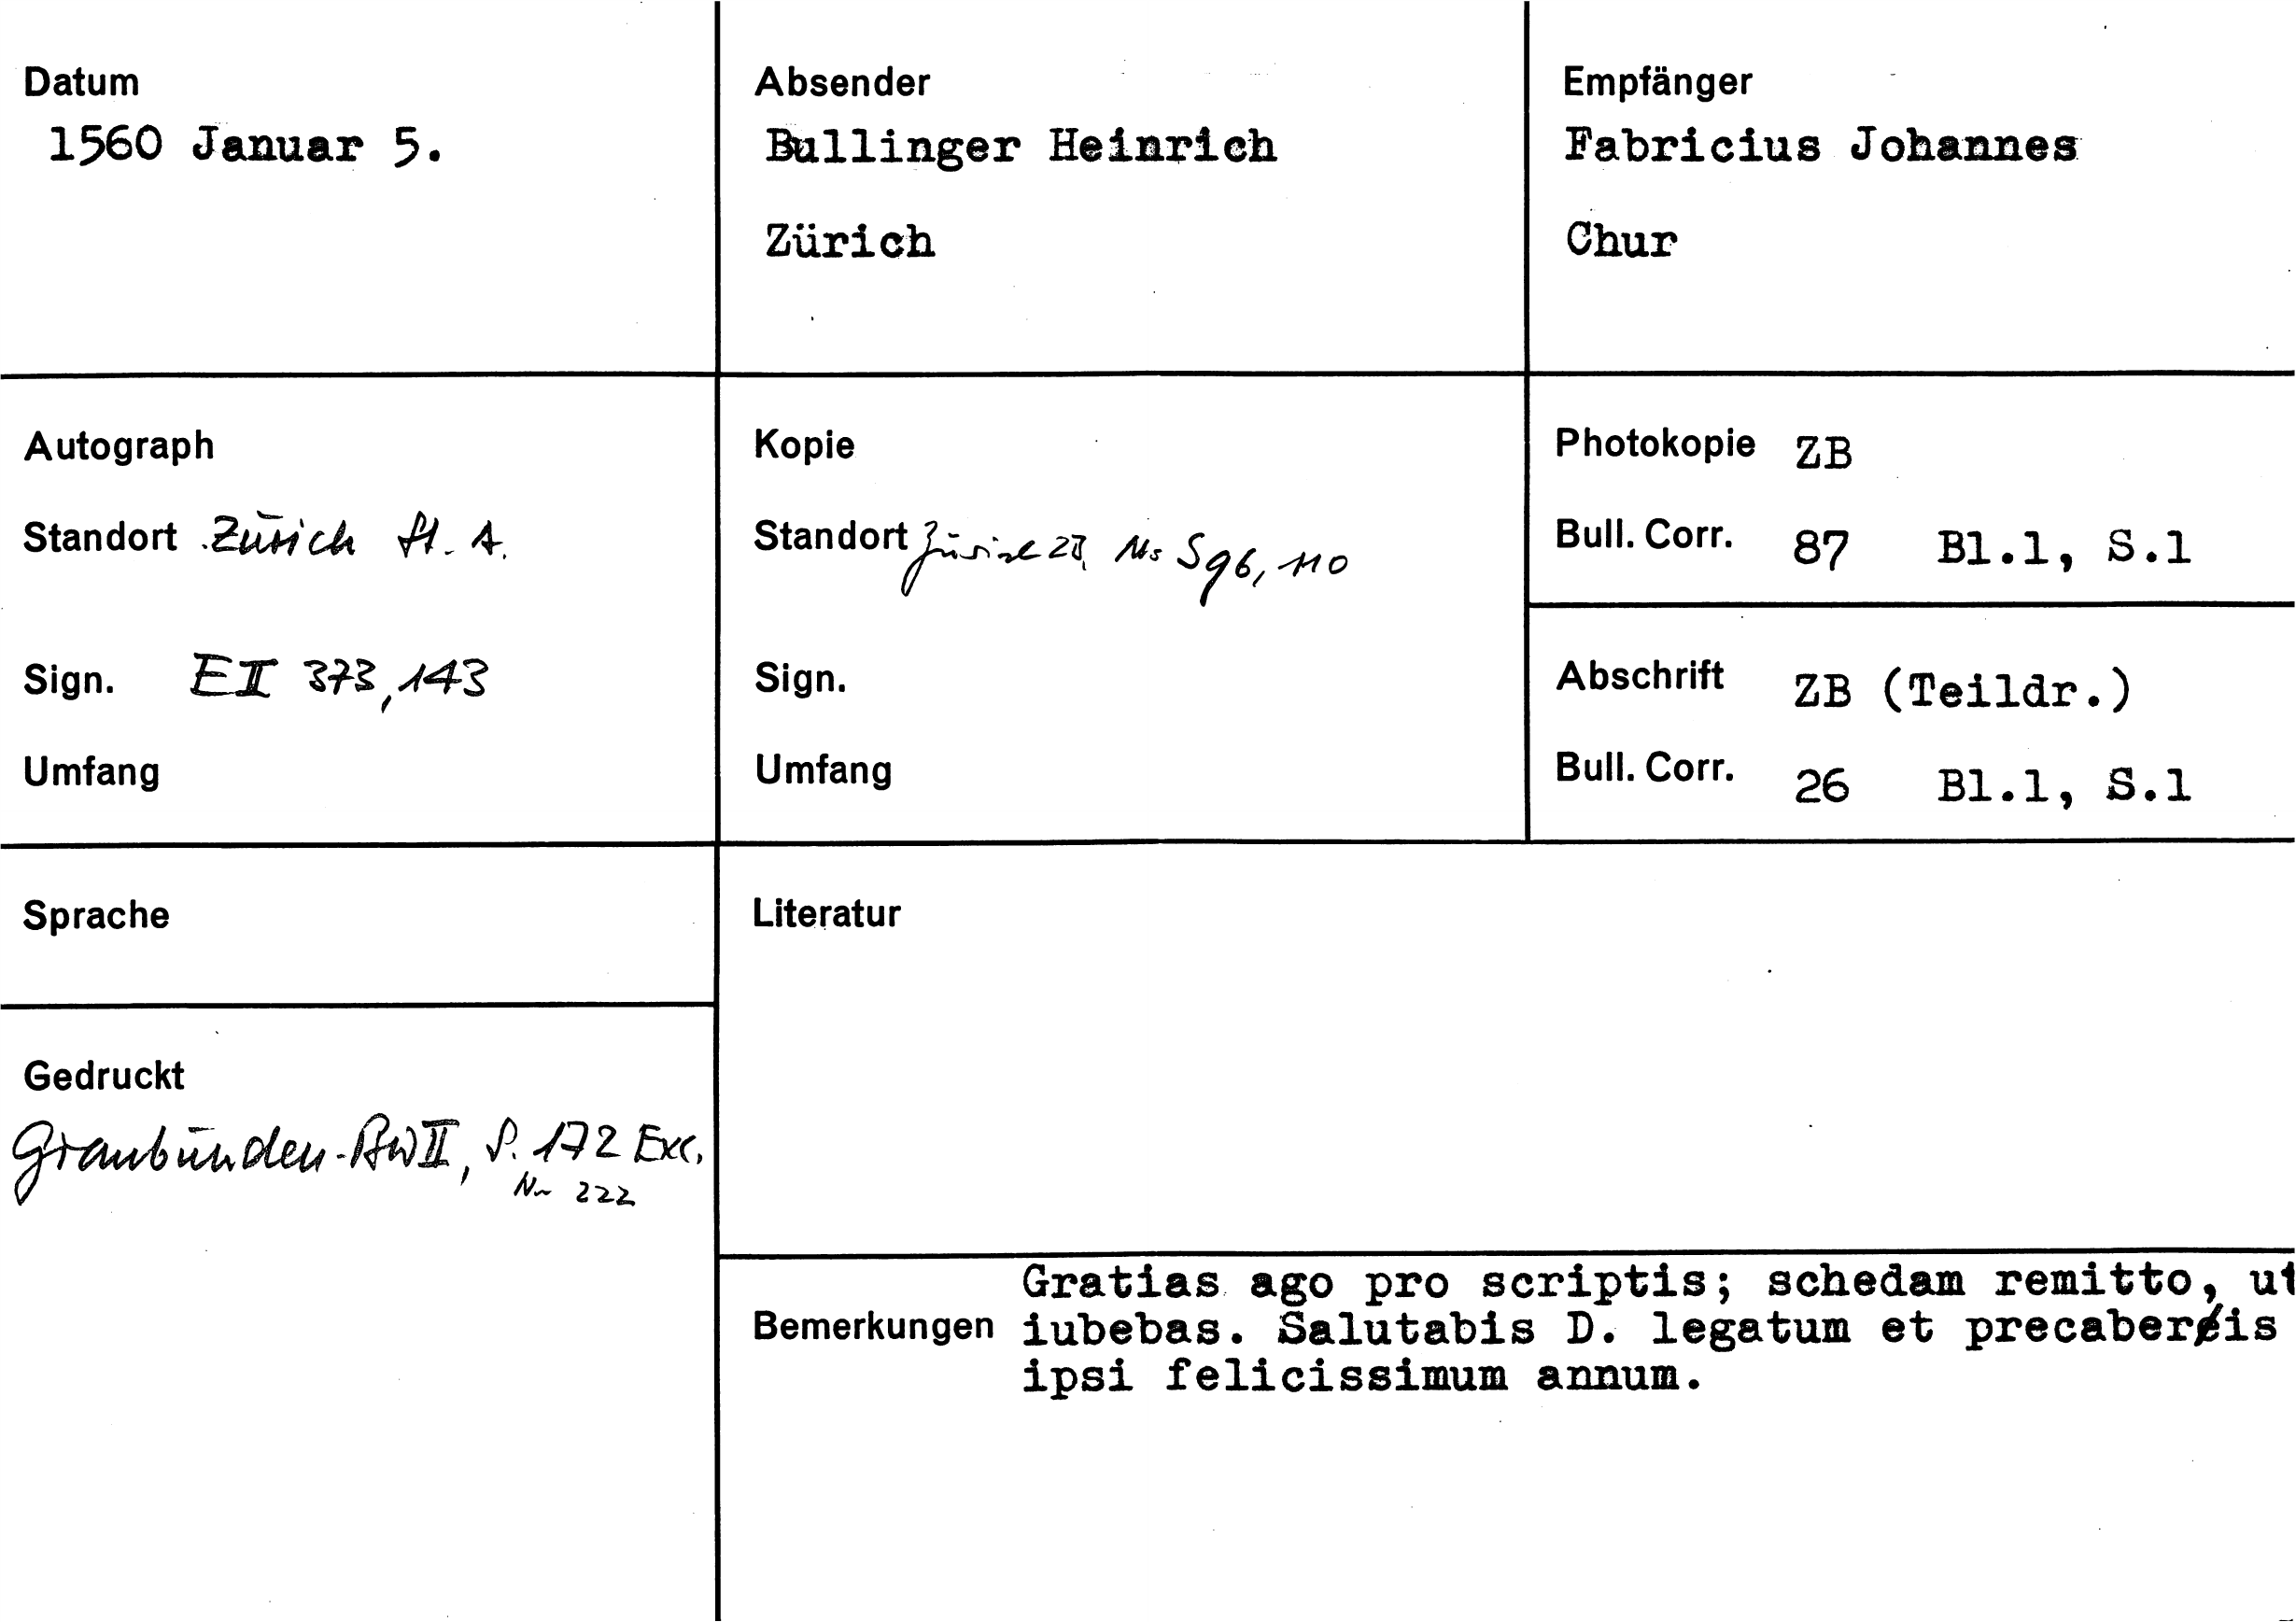 Datum
1560 Januar 5.
Absender
Bullinger Heinrich
Zürich
Empfänger
Fabricius Johannes
Chur
Autograph
Standort Zürich St. A.
Sign. EII 373,143
Umfang
Kopie
Standort Zürich ZB, Ms S 96, 110
Sign.
Umfang
Photokopie ZB
Bull. Corr. 87 Bl.1, S.1
Abschrift ZB (Teildr.)
Bull. Corr. 26 Bl.1, S.1
Sprache
Gedruckt
Graubünden-BW II, S. 172 Exc.
Nr 222
Literatur
Bemerkungen
Gratias ago pro scriptis; schedam remitto, ut
iubebas. Salutabis D. legatum et precaberis
ipsi felicissimum annum.